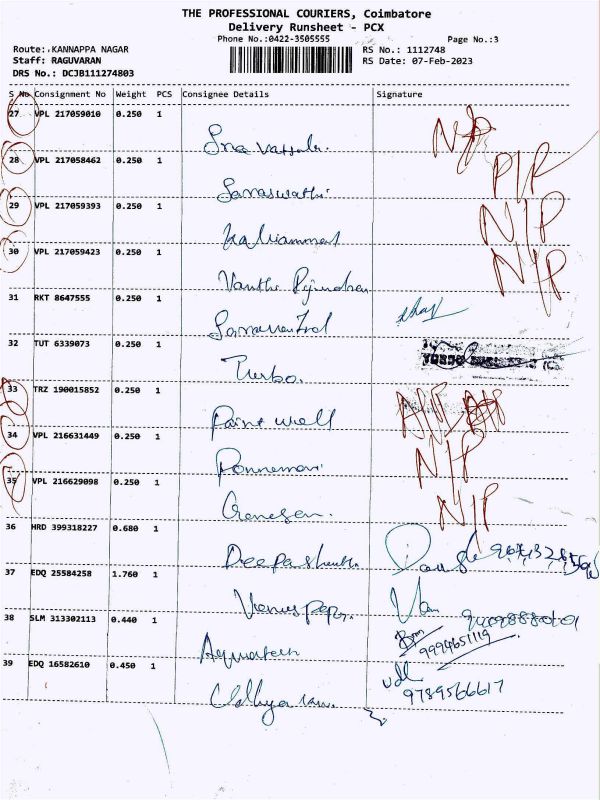 THE PROFESSIONAL COURIERS, Coimbatore
Delivery Runsheet - PCX
Phone No.:0422-3505555
Page No.:3
Route: KANNAPPA NAGAR
RS No.: 1112748
Staff: RAGUVARAN
RS Date: 07-Feb-2023
DRS No.: DCJB111274803
S No Consignment No Weight PCS Consignee Details Signature
27 VPL 217059010 0.250 1
N/P
28 VPL 217058462 0.250 1
Saraswathi.
P/P
29 VPL 217059393 0.250 1
Kaliammal
N/P
30 VPL 217059423 0.250 1
N/P
31 RKT 8647555 0.250 1
32 TUT 6339073 0.250 1
Turbo.
33 TRZ 190015852 0.250 1
Paint well
34 VPL 216631449 0.250 1
N/P
35 VPL 216629098 0.250 1
Ganesan.
N/P
36 HRD 399318227 0.680 1
37 EDQ 25584258 1.760 1
Venus
38 SLM 313302113 0.440 1
9994651119
Aquatech
39 EDQ 16582610 0.450 1
9789566617